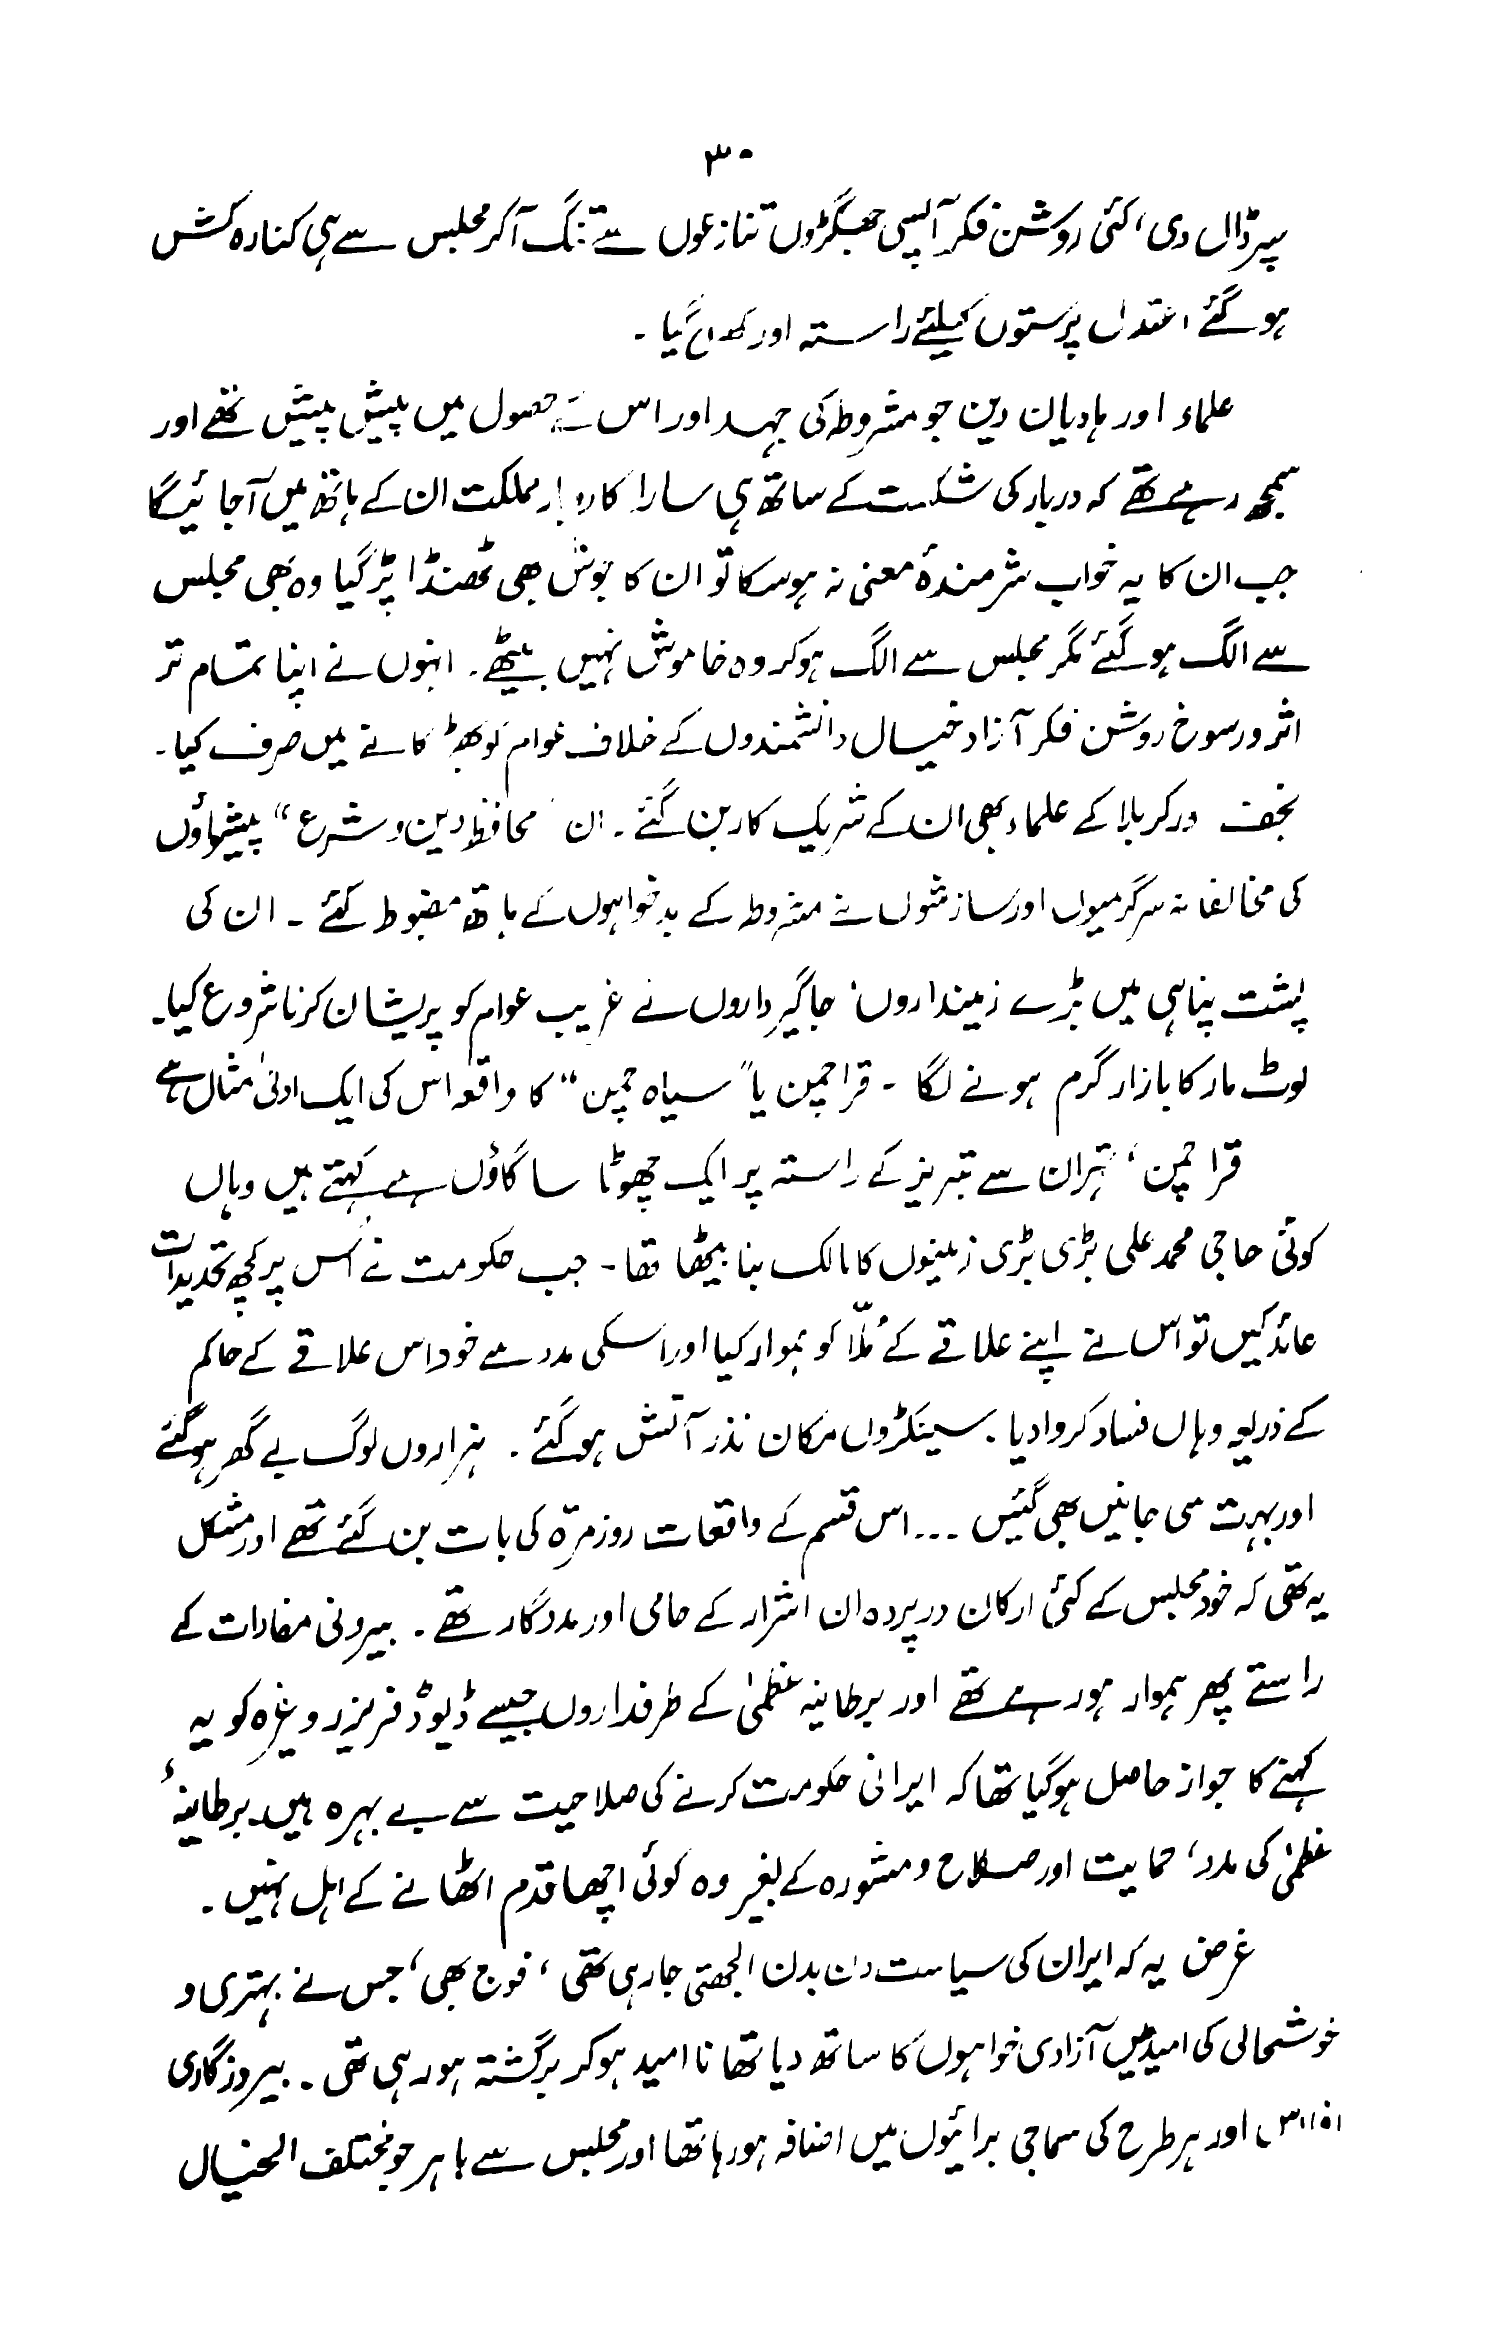 ۳۰
سپر ڈال دی، کئی روشن فکر آپسی جھگڑوں تنازعوں سے تنگ آکر مجلس سے ہی کنارہ کش
ہو گئے اعتدال پرستوں کیلئے راستہ اور کھل گیا ۔
علماء اور ہادیان دین جو مشروطہ کی جہد اور اس کے حصول میں پیش پیش تھے اور
سمجھ رہے تھے کہ دربار کی شکست کے ساتھ ہی سارا کاروبار مملکت ان کے ہاتھ میں آجائیگا
جب ان کا یہ خواب شرمندۂ معنی نہ ہوسکا تو ان کا جوش بھی ٹھنڈا پڑ گیا وہ بھی مجلس
سے الگ ہو گئے مگر مجلس سے الگ ہوکر وہ خاموش نہیں بیٹھے ۔ انہوں نے اپنا تمام تر
اثر و رسوخ روشن فکر آزاد خیال دانشمندوں کے خلاف عوام کو بھڑکانے میں صرف کیا ۔
نجف اور کربلا کے علماء بھی ان کے شریک کار بن گئے ۔ ان "محافظ دین و شرع" پیشواؤں
کی مخالفانہ سرگرمیوں اور سازشوں نے مشروطہ کے بدخواہوں کے ہاتھ مضبوط کئے ۔ ان کی
پشت پناہی میں بڑے زمینداروں، جاگیرداروں نے غریب عوام کو پریشان کرنا شروع کیا ۔
لوٹ مار کا بازار گرم ہونے لگا ۔ قراچمن یا "سیاہ چمن" کا واقعہ اس کی ایک ادنیٰ مثال ہے
قراچمن، تہران سے تبریز کے راستہ پر ایک چھوٹا سا گاؤں ہے کہتے ہیں وہاں
کوئی حاجی محمد علی بڑی بڑی زمینوں کا مالک بنا بیٹھا تھا ۔ جب حکومت نے اُس پر کچھ تحدیدات
عائد کیں تو اس نے اپنے علاقے کے مُلّا کو ہموار کیا اور اسکی مدد سے خود اس علاقے کے حاکم
کے ذریعہ وہاں فساد کروا دیا ۔ سینکڑوں مکان نذر آتش ہو گئے ۔ ہزاروں لوگ بے گھر ہو گئے
اور بہت سی جانیں بھی گئیں ... اس قسم کے واقعات روزمرّہ کی بات بن گئے تھے اور مشکل
یہ تھی کہ خود مجلس کے کئی ارکان در پردہ ان اشرار کے حامی اور مددگار تھے ۔ بیرونی مفادات کے
راستے پھر ہموار ہو رہے تھے اور برطانیہ عظمیٰ کے طرفداروں جیسے ڈیوڈ فریزر وغیرہ کو یہ
کہنے کا جواز حاصل ہوگیا تھا کہ ایرانی حکومت کرنے کی صلاحیت سے بے بہرہ ہیں۔ برطانیۂ
عظمیٰ کی مدد، حمایت اور صلاح و مشورہ کے بغیر وہ کوئی اچھا قدم اٹھانے کے اہل نہیں ۔
غرض یہ کہ ایران کی سیاست دن بدن الجھتی جا رہی تھی، فوج بھی، جس نے بہتری و
خوشحالی کی امید میں آزادی خواہوں کا ساتھ دیا تھا نا امید ہوکر برگشتہ ہو رہی تھی ۔ بیروزگاری
اور ہر طرح کی سماجی برائیوں میں اضافہ ہو رہا تھا اور مجلس سے باہر جو مختلف الخیال